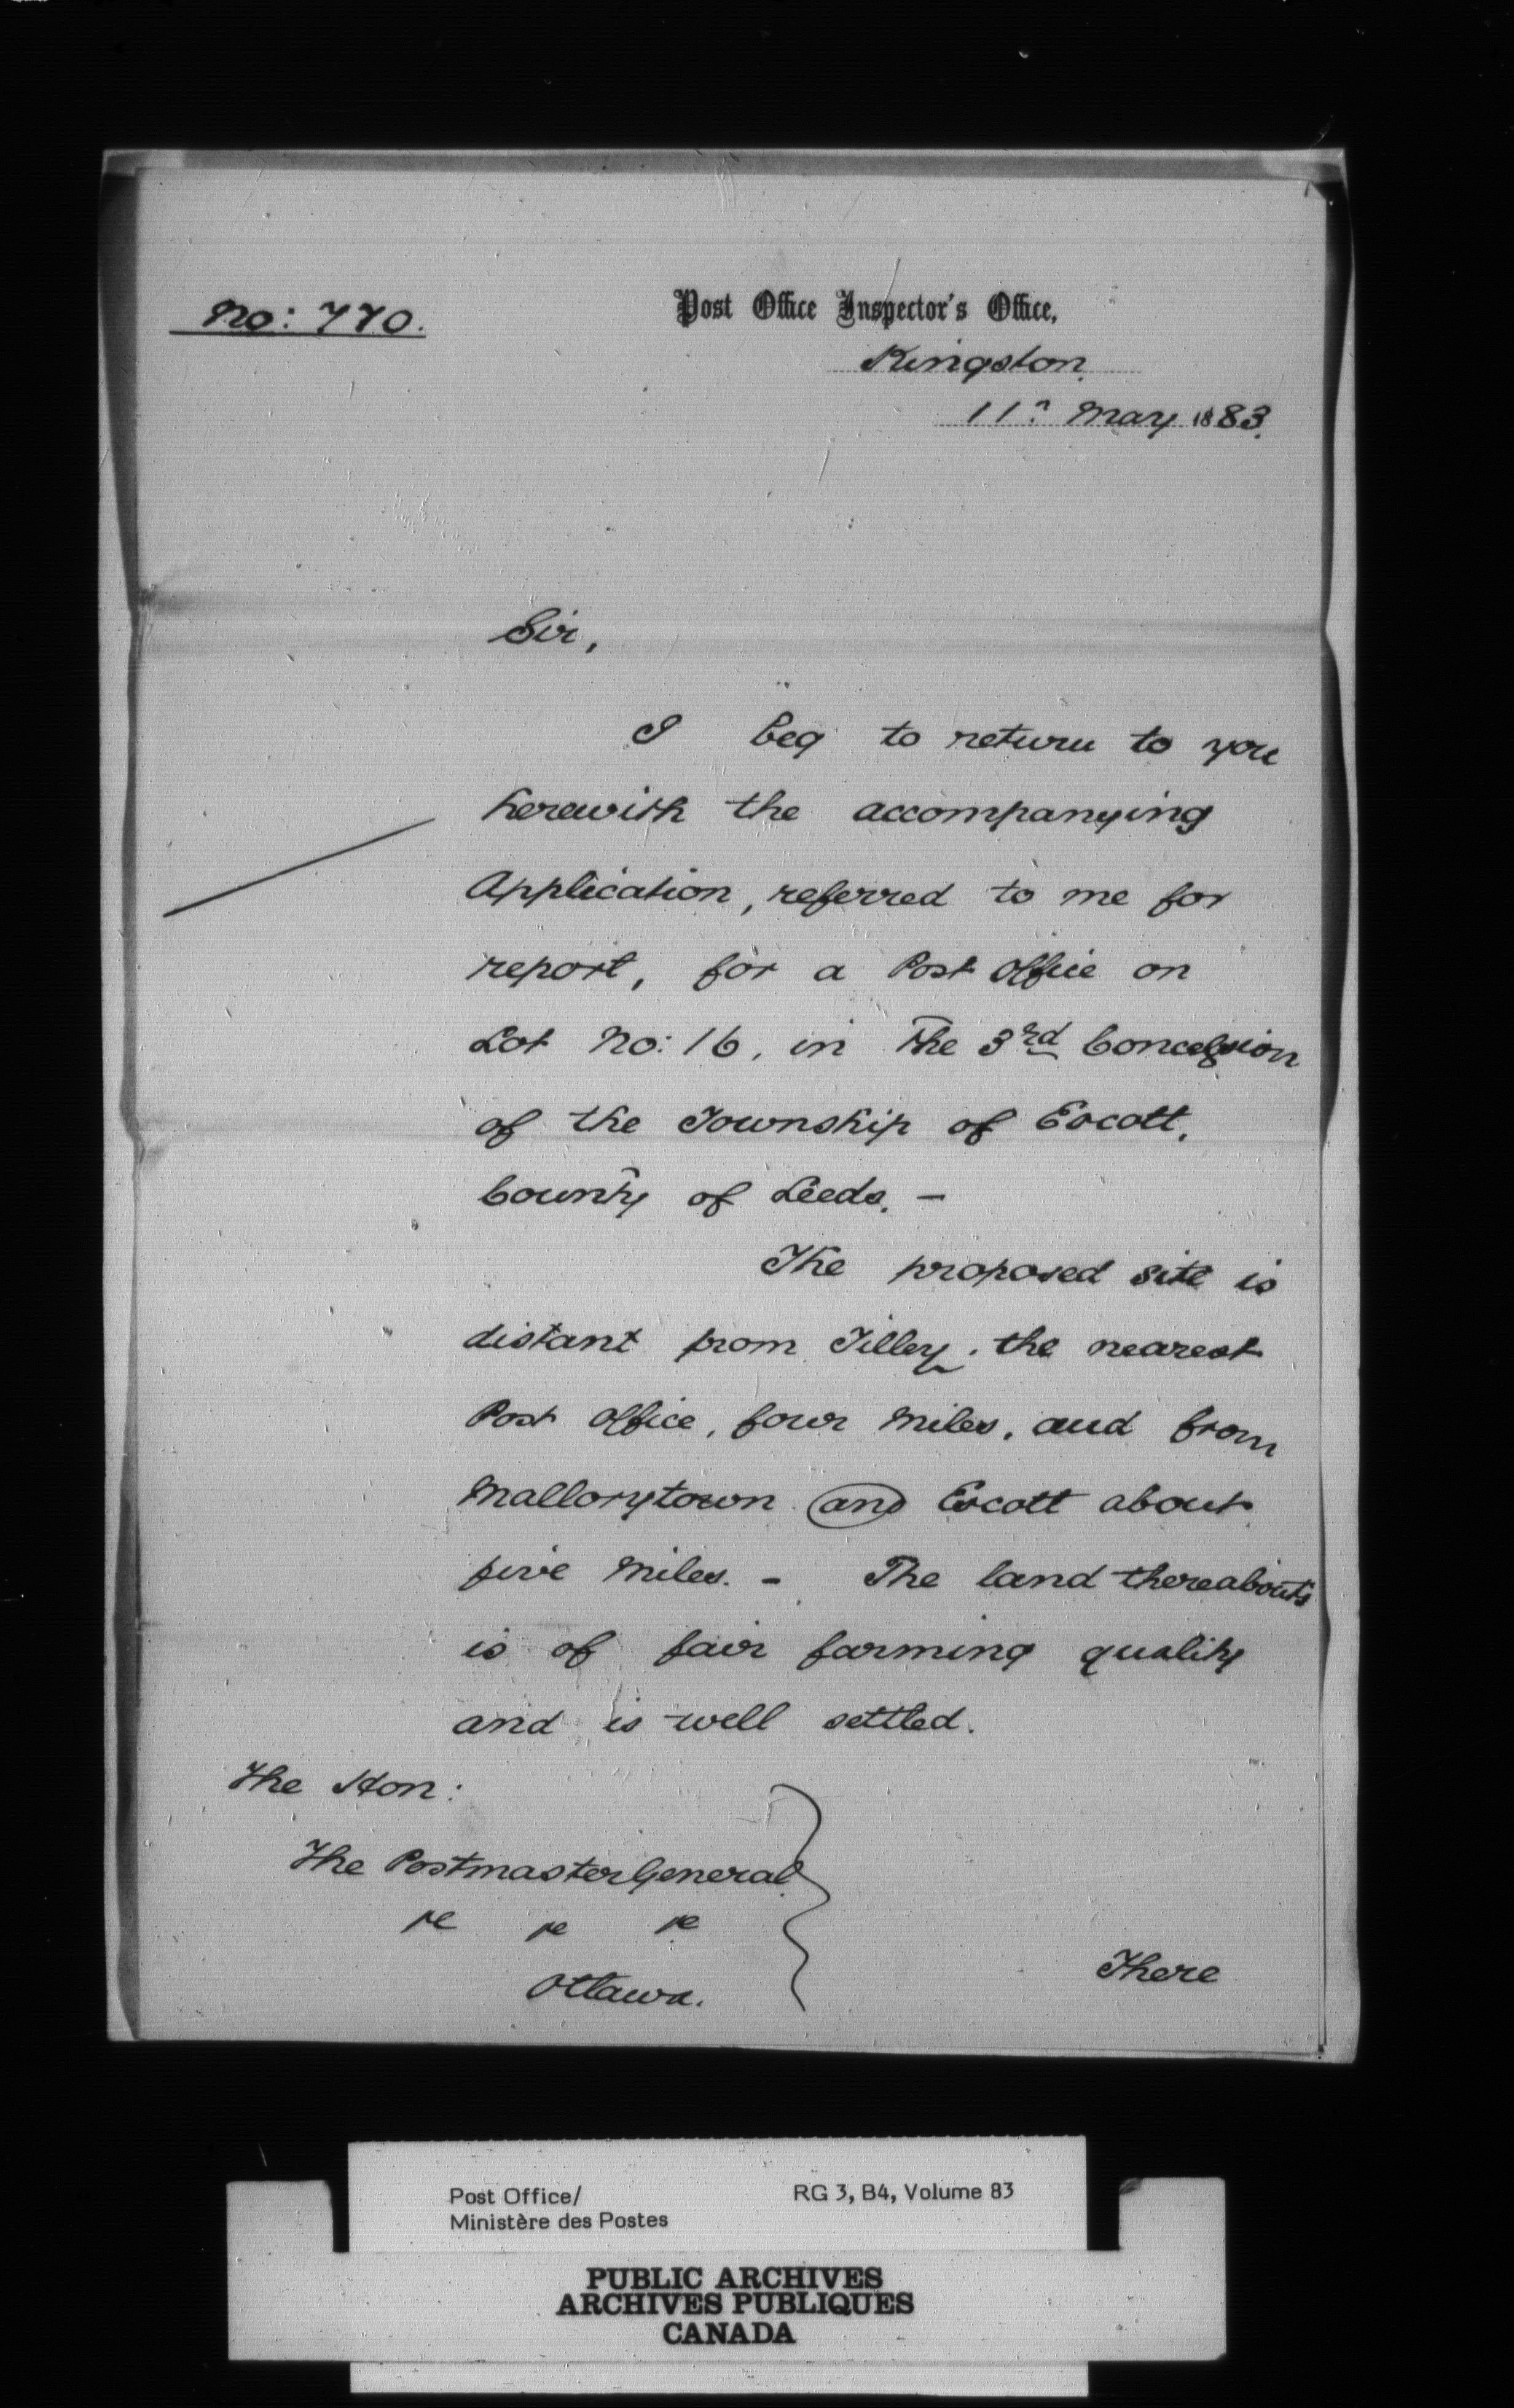 No: 770.
Post Office Inspector's Office,
Kingston.
11th May 1883.
Sir,
I beg to return to you
herewith the accompanying
Application, referred to me for
report, for a Post Office on
Lot No: 16, in the 3rd Concession
of the Township of Escott,
County of Leeds. —
The proposed site is
distant from Tilley, the nearest
Post Office, four miles, and from
Mallorytown and Escott about
five miles. — The land thereabouts
is of fair farming quality
and is well settled.
The Hon:
The Postmaster General
&c &c &c
Ottawa.
There
Post Office/
Ministère des Postes
RG 3, B4, Volume 83
PUBLIC ARCHIVES
ARCHIVES PUBLIQUES
CANADA